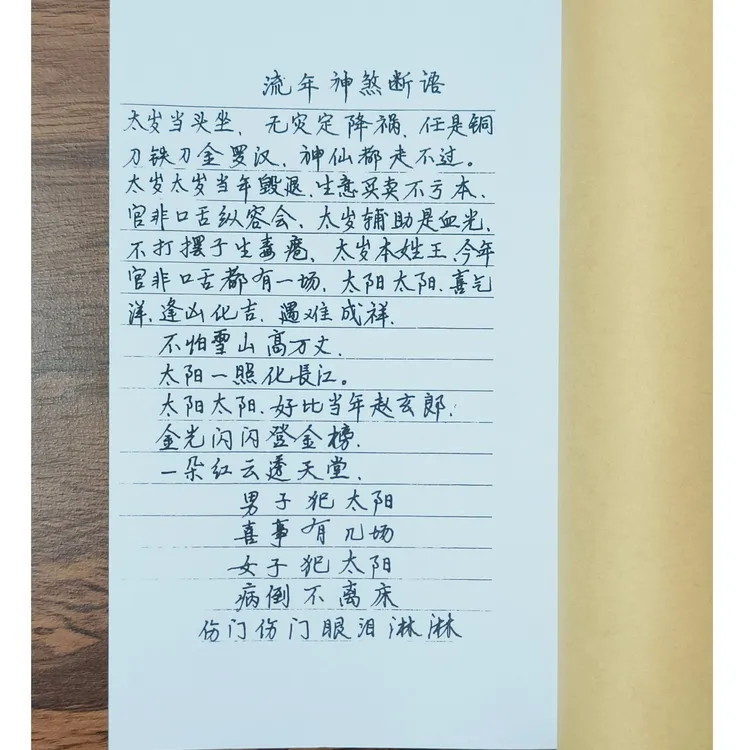 流年神煞断语
太岁当头坐，无灾定降祸，任是铜
刀铁刀金罗汉、神仙都走不过。
太岁太岁当年毁退、生意买卖不亏本、
官非口舌纵容会、太岁辅助是血光，
不打摆子生毒疮、太岁本姓王、今年
官非口舌都有一场、太阳太阳、喜气
洋、逢凶化吉、遇难成祥、
不怕雪山高万丈、
太阳一照化長江。
太阳太阳、好比当年赵玄郎、
金光闪闪登金榜、
一朵红云透天堂、
男子犯太阳
喜事有几场
女子犯太阳
病倒不离床
伤门伤门眼泪淋淋